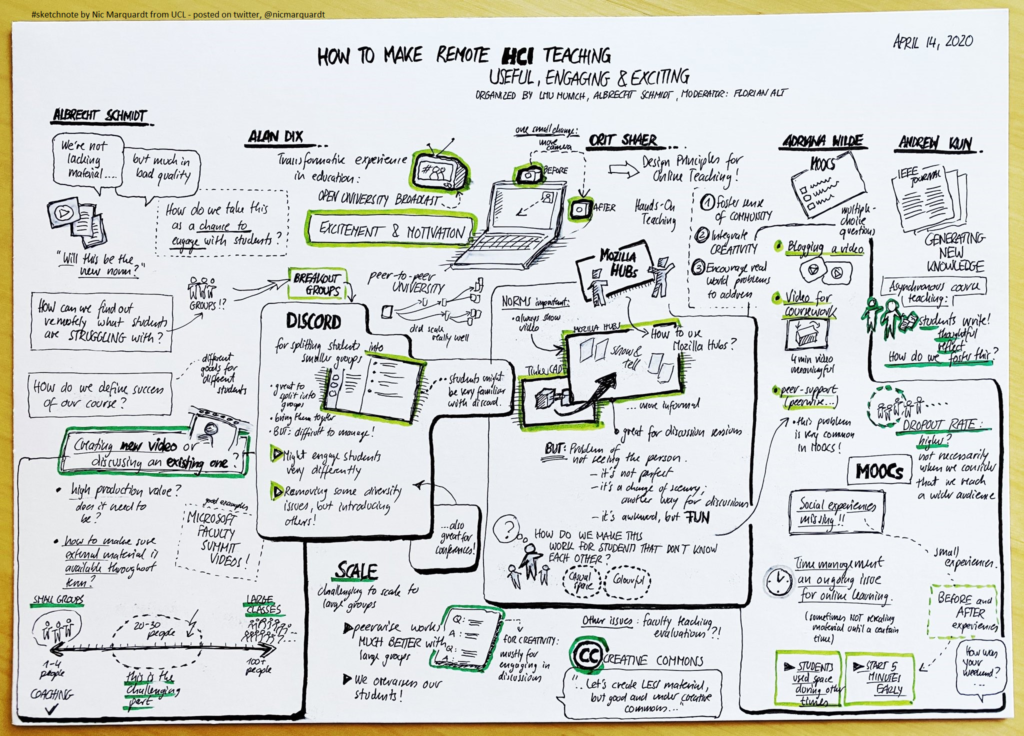 #sketchnote by Nic Marquardt from UCL - posted on twitter, @nicmarquardt
APRIL 14, 2020
HOW TO MAKE REMOTE HCI TEACHING
USEFUL, ENGAGING & EXCITING
ORGANIZED BY LMU MUNICH, ALBRECHT SCHMIDT, MODERATOR: FLORIAN ALT
ALBRECHT SCHMIDT
We're not
lacking
material....
but much in
bad quality
How do we take this
as a chance to
engage with students?
"Will this be the
new norm?"
GROUPS!?
How can we find out
remotely what students
are STRUGGLING with?
How do we define success
of our course?
different
goals for
different
students
Creating new video or
discussing an existing one?
• high production value?
does it need to
be?
• how to make sure
external material is
available throughout
term?
good examples
MICROSOFT
FACULTY
SUMMIT
VIDEOS!
SMALL GROUPS
20-30
people
LARGE
CLASSES
1-4
people
this is the
challenging
part
100+
people
COACHING
ALAN DIX
Transformative experience
in education:
OPEN UNIVERSITY BROADCAST
EXCITEMENT & MOTIVATION
BREAKOUT
GROUPS
peer-to-peer
UNIVERSITY
did scale
really well
DISCORD
for splitting student into
smaller groups
• great to
split into
groups
• bring them together
• BUT: difficult to manage!
students might
be very familiar
with discord.
Might engage students
very differently
Removing some diversity
issues, but introducing
others!
...also
great for
conferences!
SCALE
challenging to scale to
large groups
peerwise works
MUCH BETTER with
large groups
We overassess our
students!
Q:
A:
Q:
A:
FOR CREATIVITY:
mostly for
engaging in
discussions
one small change:
move
camera
BEFORE
AFTER
ORIT SHAER
Design Principles for
Online Teaching!
Hands-On
Teaching
1 Foster sense
of COMMUNITY
2 Integrate
CREATIVITY
3 Encourage real
world problems
to address
MOZILLA
HUBS
NORMS important:
• always show
video
MOZILLA HUBS
SHOW &
TELL
How to use
Mozilla Hubs?
TinkerCAD
... more informal
• great for discussion sessions
BUT: Problem of
not seeing the person.
- it's not perfect
- it's a change of scenery;
another way for discussions
- it's awkward, but FUN
?
HOW DO WE MAKE THIS
WORK FOR STUDENTS THAT DON'T KNOW
EACH OTHER?
Casual
space
Colourful
Other issues: faculty teaching
evaluations?!
CC CREATIVE COMMONS
"..Let's create LESS material,
but good and under creative
commons..."
ADRIANA WILDE
MOOCS
multiple-
choice
questions
• Blogging a video
• Video for
coursework
4 min video
meaningful
• peer-support
(peerwise...)
• this problem
is very common
in MOOCs!
MOOCs
Social experiences
missing!!
Time management
an ongoing issue
for online learning.
(sometimes NOT revealing
material until a certain
time)
STUDENTS
used space
during other
times
START 5
MINUTES
EARLY
ANDREW KUN
IEEE
JOURNAL
GENERATING
NEW
KNOWLEDGE
Asynchronous course
teaching:
students write!
thoughtful
reflect
How do we foster this?
DROPOUT RATE:
higher?
not necessarily
when we consider
that we reach
a wider audience
small
experiences.
BEFORE and
AFTER
experiences
How was
your
weekend?
...